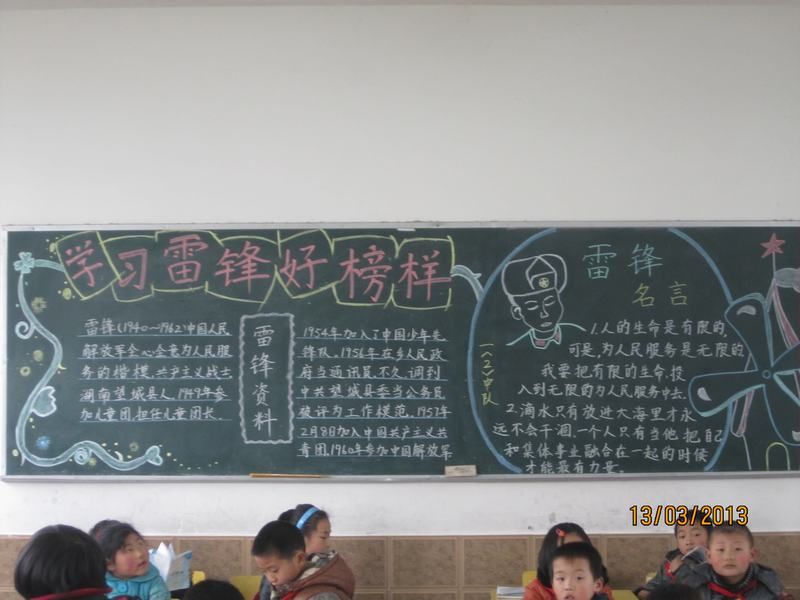 学习雷锋好榜样
雷锋(1940~1962)中国人民
解放军全心全意为人民服
务的楷模,共产主义战士,
湖南望城县人,1949年参
加儿童团,担任儿童团长.
雷锋资料
1954年加入了中国少年先
锋队,1956年在乡人民政
府当通讯员不久,调到
中共望城县委当公务员
被评为工作模范,1957年
2月8日加入中国共产主义共
青团,1960年参加中国解放军
一〈2〉中队
雷锋
名言
1.人的生命是有限的,
可是,为人民服务是无限的,
我要把有限的生命,投
入到无限的为人民服务中去.
2.滴水只有放进大海里才永
远不会干涸,一个人只有当他把自己
和集体事业融合在一起的时候
才能最有力量.
13/03/2013